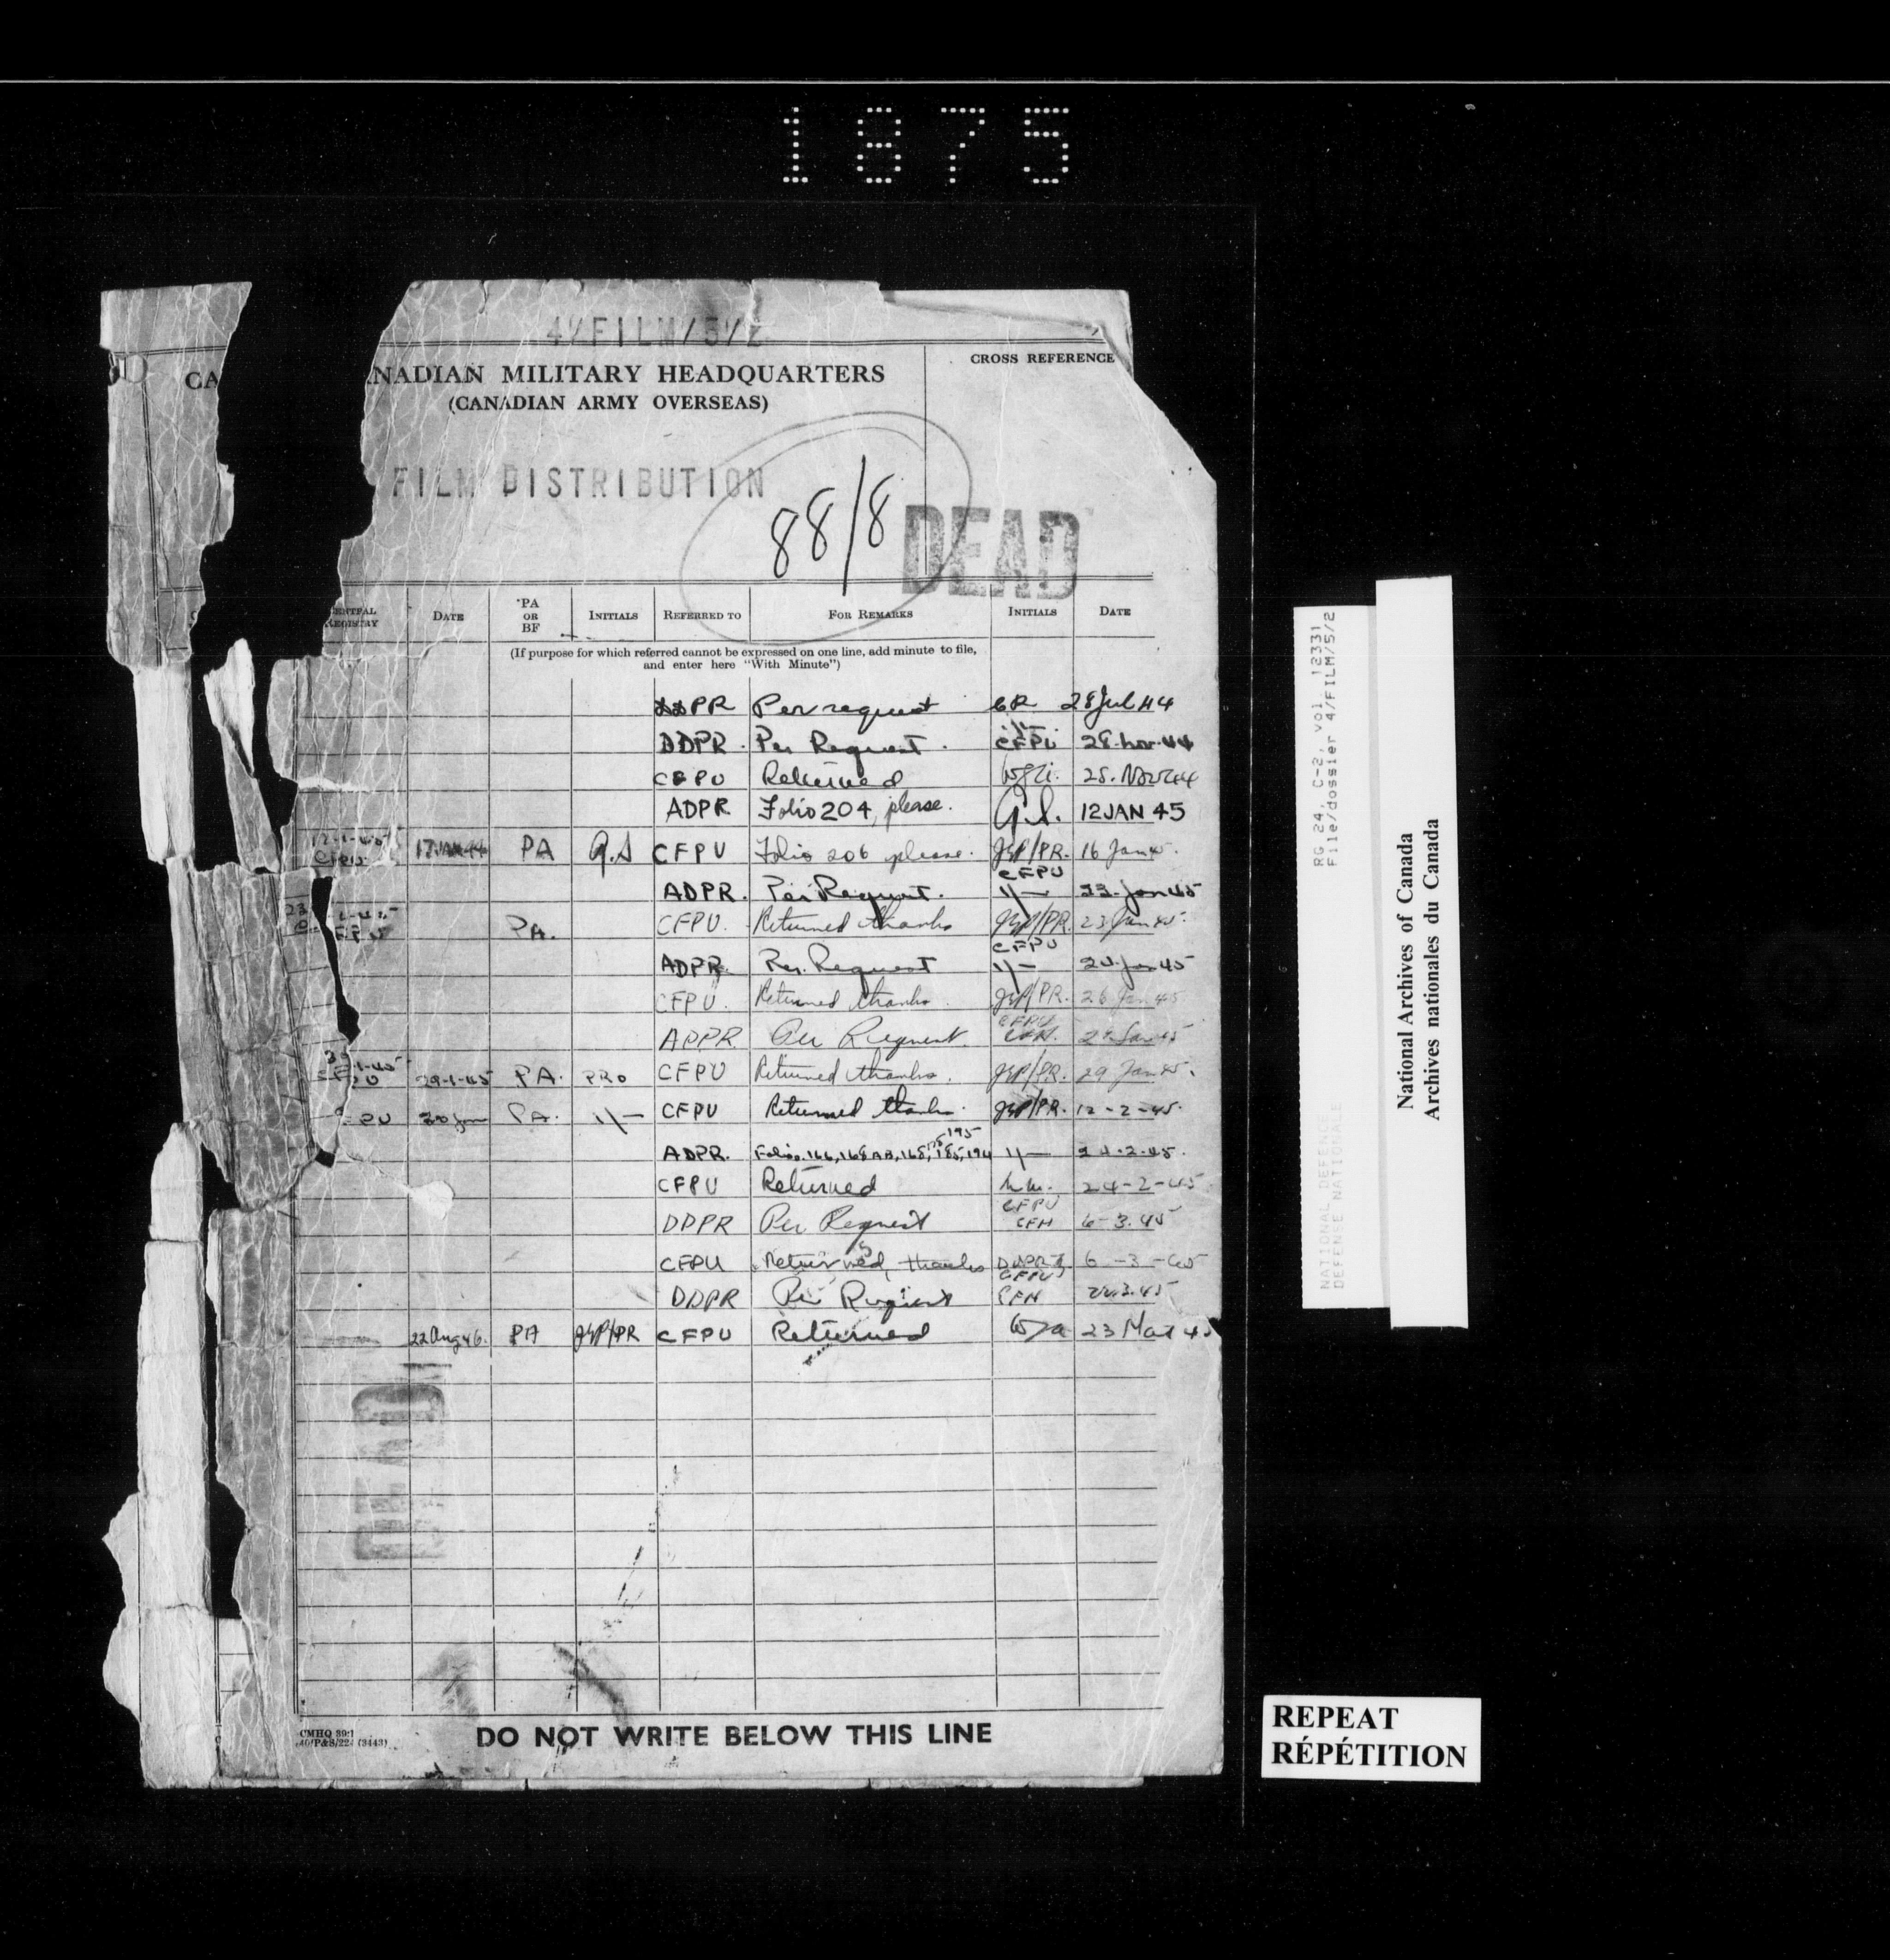 1875
4/FILM/5/2
CA
NADIAN MILITARY HEADQUARTERS
(CANADIAN ARMY OVERSEAS)
CROSS REFERENCE
FILM DISTRIBUTION
88/8
DEAD
REGISTRY DATE PA OR BF INITIALS REFERRED TO FOR REMARKS INITIALS DATE
(If purpose for which referred cannot be expressed on one line, add minute to file,
and enter here "With Minute")
DDPR Per request 28 Jul 44
DDPR. Per Request. CFPU
CFPU Returned 25. Nov 44
ADPR Folio 204, please. G.S. 12 JAN 45
12-1-45 CFPU 17 JAN 44 PA G.S CFPU Folio 206 please. 16 Jan 45.
ADPR. Per Request. CFPU 23. Jan 45
PA. CFPU. Returned thanks 23 Jan 45.
ADPR. Per. Request CFPU Jan 45
CFPU. Returned thanks. 26 Jan 45
ADPR Per Request. CFPU CFH. Jan 45
29-1-45 PA. PRO CFPU Returned thanks. 29 Jan 45.
30 Jan PA. CFPU Returned thanks. 12-2-45.
ADPR. Folios. 166, 168AB, 168, 175, 185, 194 195 24-2-45.
CFPU Returned 24-2-45
DDPR Per Request CFPU CFH 6-3.45
CFPU Returned, thanks DDPR 6-3-45
DDPR Per Request CFPU CFH
22 Aug 46. PA CFPU Returned 23 Mar 45
DEAD
CMHQ 39:1
40/P&S/224 (3443)
DO NOT WRITE BELOW THIS LINE
RG 24, C-2, vol. 12331
File/dossier 4/FILM/5/2
NATIONAL DEFENCE
DEFENSE NATIONALE
National Archives of Canada
Archives nationales du Canada
REPEAT
RÉPÉTITION